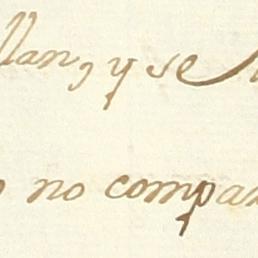 llan, y se
no compar